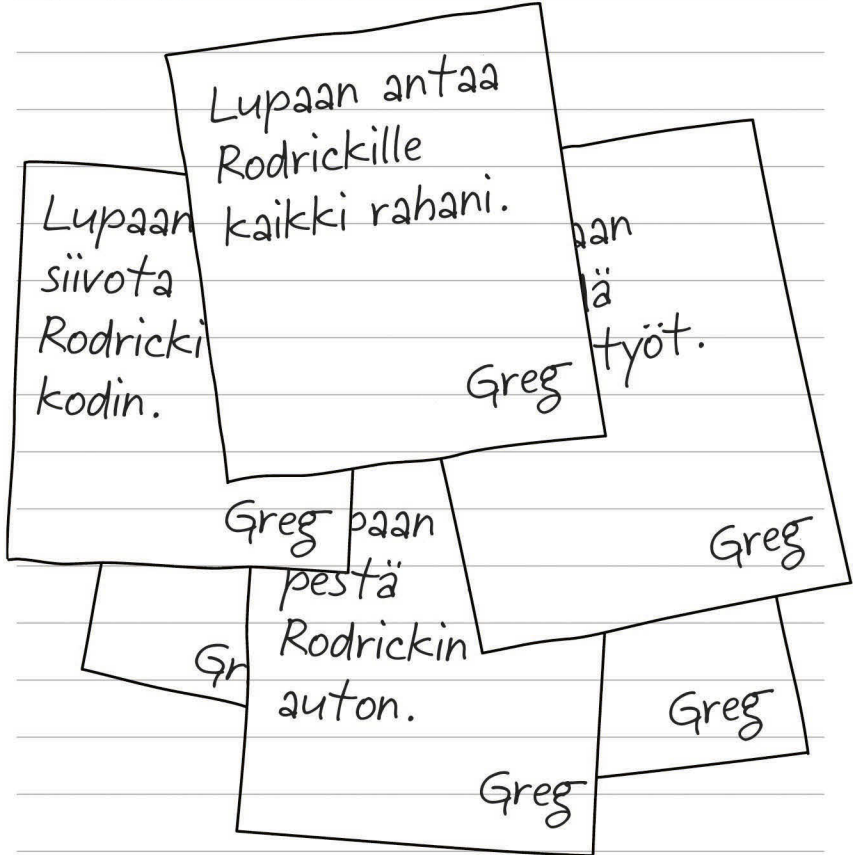 Lupaan antaa
Rodrickille
kaikki rahani.
Greg
Lupaan
siivota
Rodricki
kodin.
Greg
työt.
Greg
pestä
Rodrickin
auton.
Greg
Greg